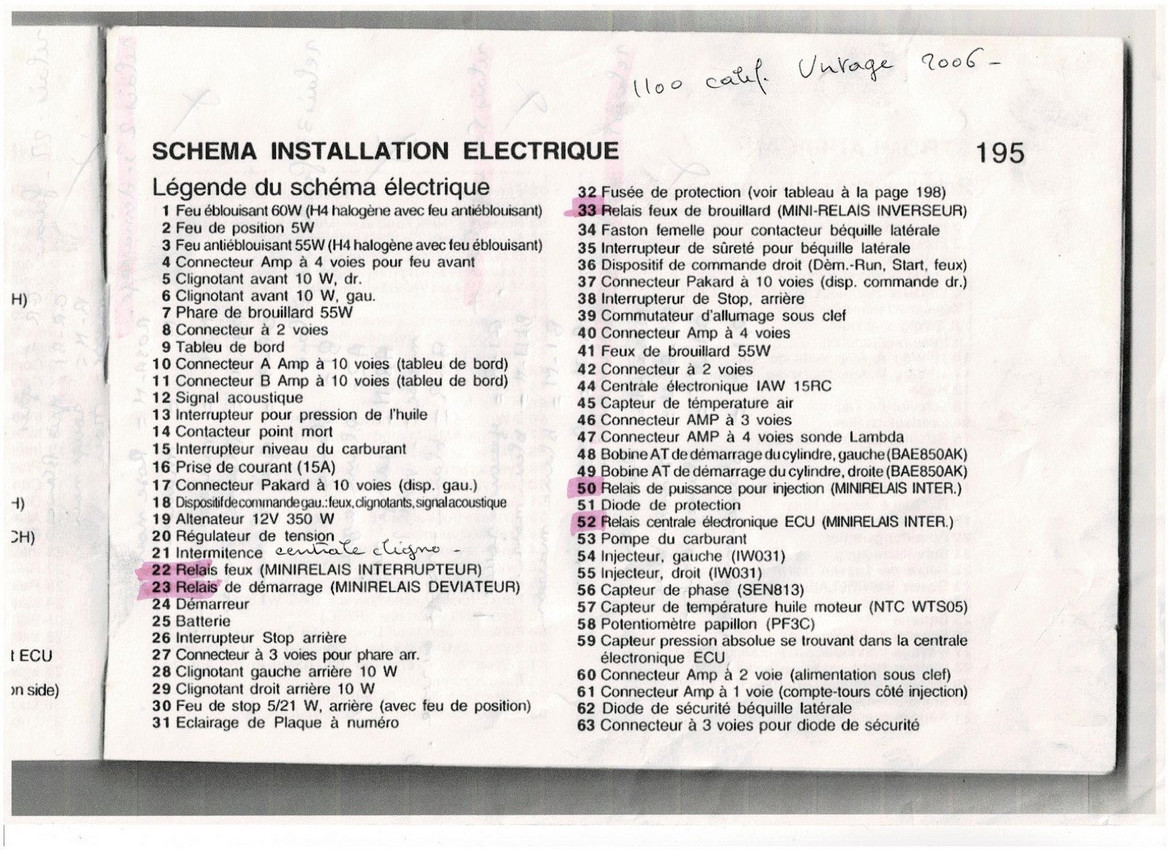 1100 calif. Vintage 2006 -
SCHEMA INSTALLATION ELECTRIQUE 195
Légende du schéma électrique
1 Feu éblouisant 60W (H4 halogène avec feu antiéblouisant)
2 Feu de position 5W
3 Feu antiéblouisant 55W (H4 halogène avec feu éblouisant)
4 Connecteur Amp à 4 voies pour feu avant
5 Clignotant avant 10 W, dr.
6 Clignotant avant 10 W, gau.
7 Phare de brouillard 55W
8 Connecteur à 2 voies
9 Tableu de bord
10 Connecteur A Amp à 10 voies (tableu de bord)
11 Connecteur B Amp à 10 voies (tableu de bord)
12 Signal acoustique
13 Interrupteur pour pression de l'huile
14 Contacteur point mort
15 Interrupteur niveau du carburant
16 Prise de courant (15A)
17 Connecteur Pakard à 10 voies (disp. gau.)
18 Dispositif de commande gau.: feux, clignotants, signal acoustique
19 Altenateur 12V 350 W
20 Régulateur de tension
21 Intermitence centrale cligno -
22 Relais feux (MINIRELAIS INTERRUPTEUR)
23 Relais de démarrage (MINIRELAIS DEVIATEUR)
24 Démarreur
25 Batterie
26 Interrupteur Stop arrière
27 Connecteur à 3 voies pour phare arr.
28 Clignotant gauche arrière 10 W
29 Clignotant droit arrière 10 W
30 Feu de stop 5/21 W, arrière (avec feu de position)
31 Eclairage de Plaque à numéro
32 Fusée de protection (voir tableau à la page 198)
33 Relais feux de brouillard (MINI-RELAIS INVERSEUR)
34 Faston femelle pour contacteur béquille latérale
35 Interrupteur de sûreté pour béquille latérale
36 Dispositif de commande droit (Dèm.-Run, Start, feux)
37 Connecteur Pakard à 10 voies (disp. commande dr.)
38 Interrupterur de Stop, arrière
39 Commutateur d'allumage sous clef
40 Connecteur Amp à 4 voies
41 Feux de brouillard 55W
42 Connecteur à 2 voies
44 Centrale électronique IAW 15RC
45 Capteur de témperature air
46 Connecteur AMP à 3 voies
47 Connecteur AMP à 4 voies sonde Lambda
48 Bobine AT de démarrage du cylindre, gauche (BAE850AK)
49 Bobine AT de démarrage du cylindre, droite (BAE850AK)
50 Relais de puissance pour injection (MINIRELAIS INTER.)
51 Diode de protection
52 Relais centrale électronique ECU (MINIRELAIS INTER.)
53 Pompe du carburant
54 Injecteur, gauche (IW031)
55 Injecteur, droit (IW031)
56 Capteur de phase (SEN813)
57 Capteur de température huile moteur (NTC WTS05)
58 Potentiomètre papillon (PF3C)
59 Capteur pression absolue se trouvant dans la centrale
électronique ECU
60 Connecteur Amp à 2 voie (alimentation sous clef)
61 Connecteur Amp à 1 voie (compte-tours côté injection)
62 Diode de sécurité béquille latérale
63 Connecteur à 3 voies pour diode de sécurité
H)
H)
CH)
t ECU
on side)